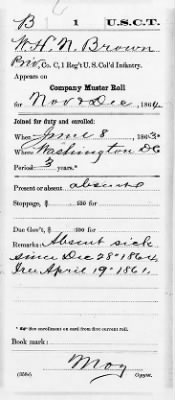 B | 1 | U.S.C.T.
W. H. N. Brown
Pvt, Co. C, 1 Reg't U.S. Col'd Infantry.
Appears on
Company Muster Roll
for Nov & Dec, 1864.
Joined for duty and enrolled:
When June 8, 1863.
Where Washington DC
Period 3 years.*
Present or absent absent
Stoppage, $ 100 for
Due Gov't, $ 100 for
Remarks: Absent sick
since Dec 28" 1864
Free April 19" 1861.
* See enrollment on card from first current roll.
Book mark:
May
(358c) Copyist.